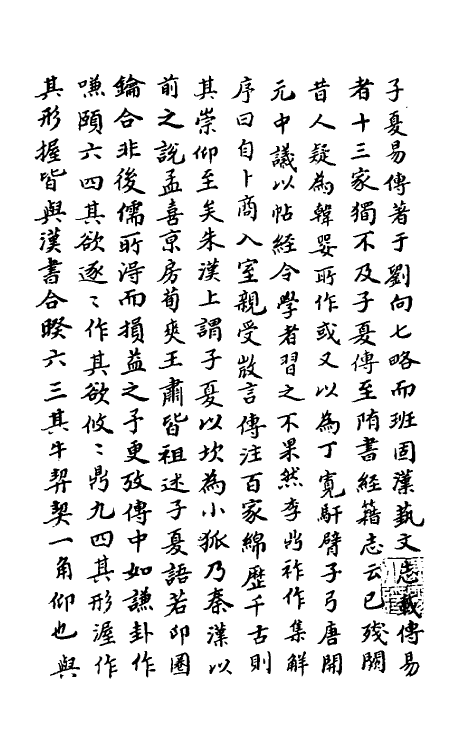 子夏易傳著于劉向七略而班固漢藝文志載傳易
者十三家獨不及子夏傳至隋書經籍志云已殘闕
昔人疑為韓嬰所作或又以為丁寬馯臂子弓唐開
元中議以帖經令學者習之不果然李鼎祚作集解
序曰自卜商入室親受微言傳注百家綿歷千古則
其崇仰至矣朱漢上謂子夏以坎為小狐乃秦漢以
前之說孟喜京房荀爽王肅皆祖述子夏語若印圈
鑰合非後儒所淂而損益之予更攷傳中如謙卦作
嗛頤六四其欲逐〻作其欲攸〻鼎九四其形渥作
其形握皆與漢書合睽六三其牛挈契一角仰也與